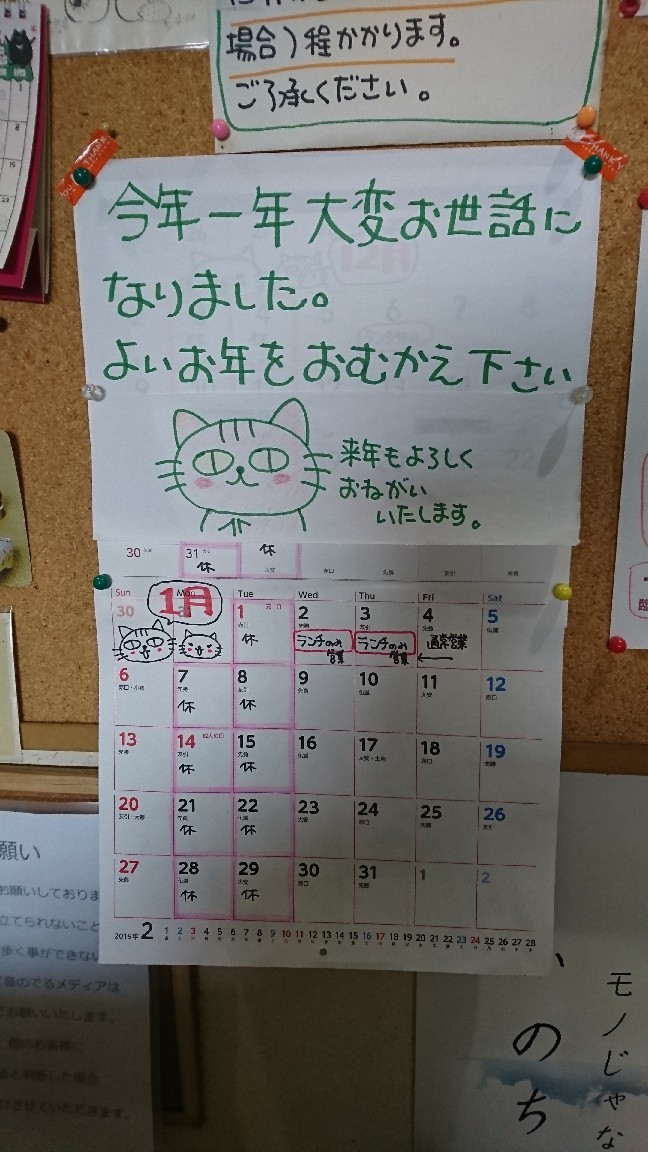 場合)程かかります。
ご了承ください。
THANK
THANK
今年一年大変お世話に
なりました。
よいお年をおむかえ下さい
来年もよろしく
おねがい
いたします。
30 31 休 休
Sun Mon Tue Wed Thu Fri Sat
1月
30 1 2 3 4 5
元日
休 ランチのみ営業 ランチのみ営業 ← 通常営業
6 7 8 9 10 11 12
休 休
13 14 15 16 17 18 19
成人の日
休 休
20 21 22 23 24 25 26
休 休
27 28 29 30 31 1 2
休 休
2019年 2 1 2 3 4 5 6 7 8 9 10 11 12 13 14 15 16 17 18 19 20 21 22 23 24 25 26 27 28
願い
お願いしておりま
立てられないこと
歩く事ができない
音のでるメディアは
お願いいたします。
他のお客様に
ると判断した場合
けさせていただきます。
モノじゃな
のち